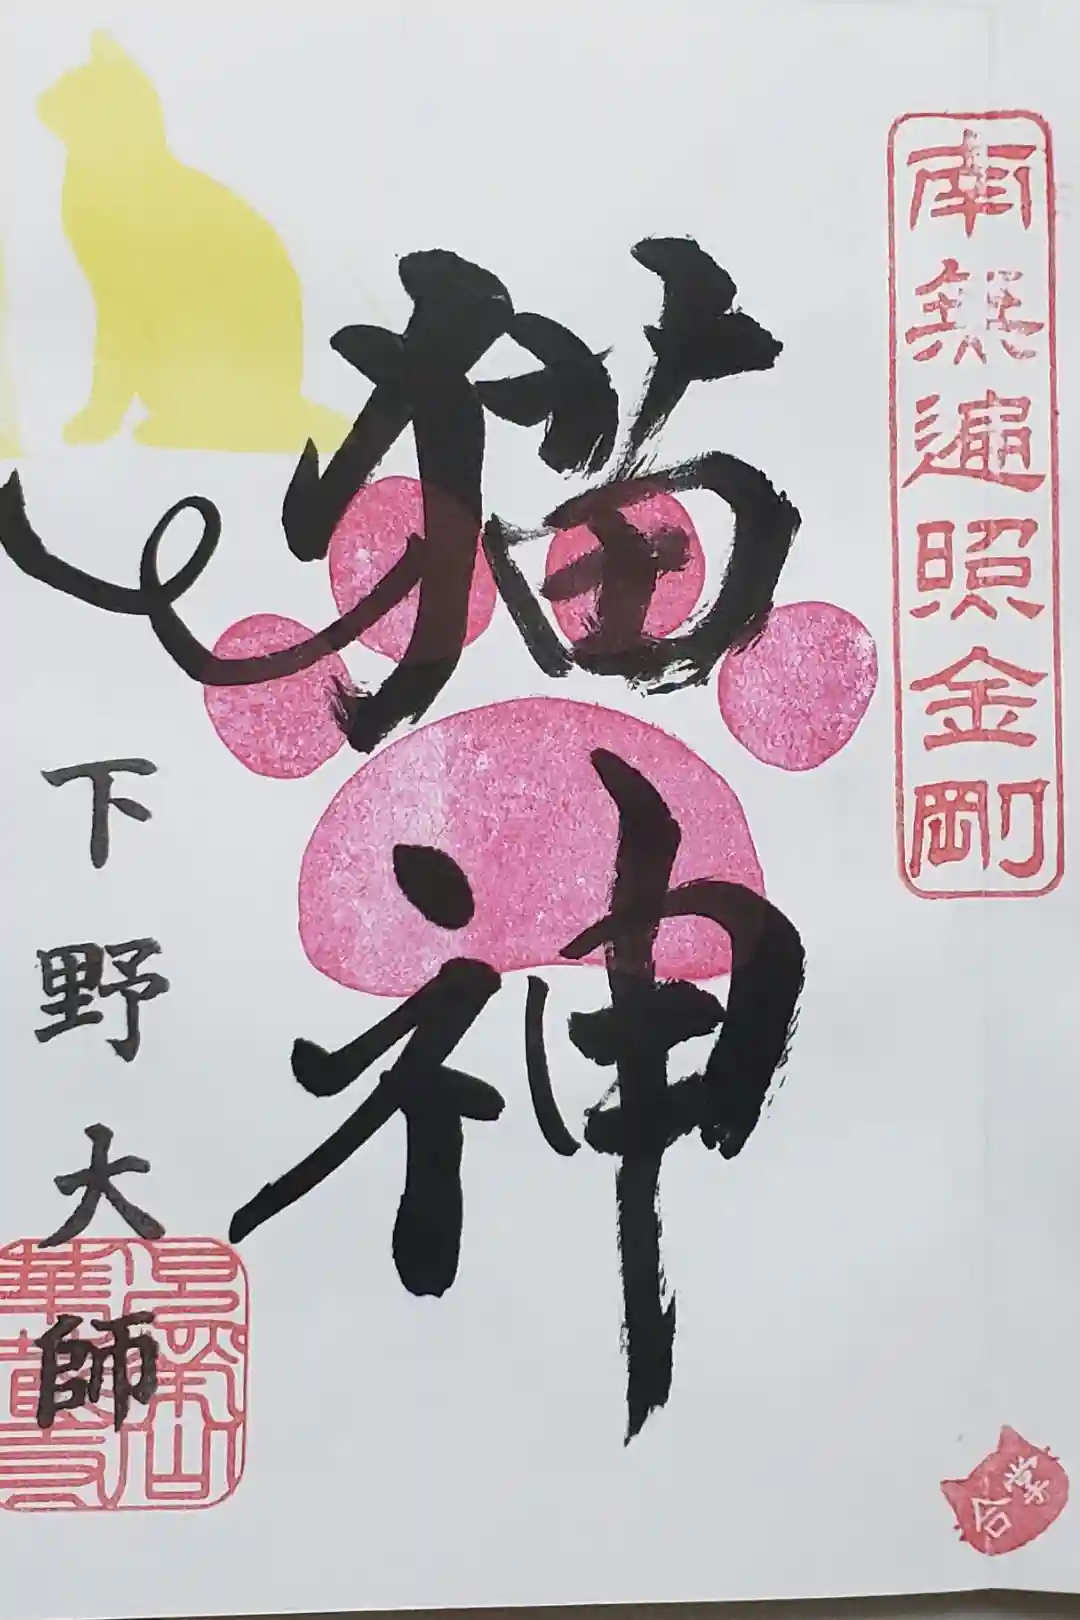 南無遍照金剛
合掌
猫神
下野大師
華蔵寺